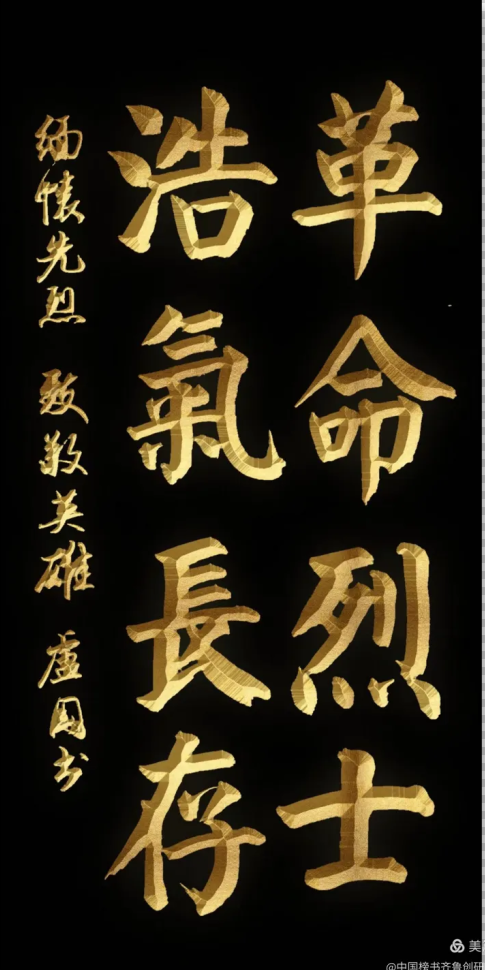 革命烈士
浩氣長存
缅懷先烈 致敬英雄 盧国书
美
@中国榜书齐鲁创研